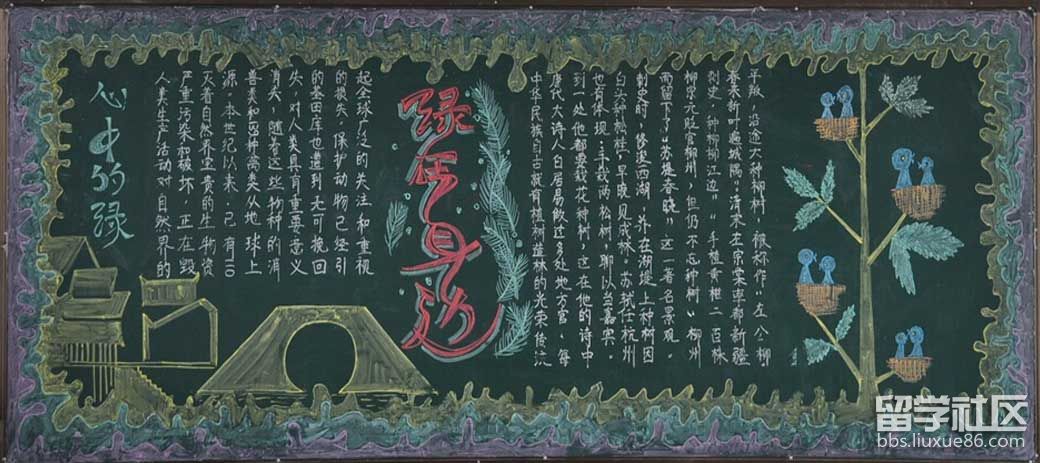 心中的绿
人类生产活动对自然界的
严重污染和破坏,正在毁
灭着自然界宝贵的生物资
源。本世纪以来,已有110
兽类和139种禽类从地球上
消失。随着这些物种的消
失,对人类具有重要意义
的基因库也遭到无可挽回
的损失。保护动物已经引
起全球广泛的关注和重视
绿在身边
中华民族自古就有植树造林的光荣传统
唐代大诗人白居易做过多处地方官,每
到一处他都要栽花种树,这在他的诗中
也有体现"手栽两松树,聊以当嘉宾。
白头种松桂,早晚见成林。"苏轼任杭州
刺史时,修浚西湖,并在湖堤上种树因
而留下了"苏堤春晓"这一著名景观。
柳宗元贬官柳州,但仍不忘种树"柳州
刺史 种柳柳江边""手植黄柑二百株
春来新叶遍城隅"清末左宗棠率部新疆
平叛,沿途大种柳树,被称作"左公柳
留学社区
bbs.liuxue86.com